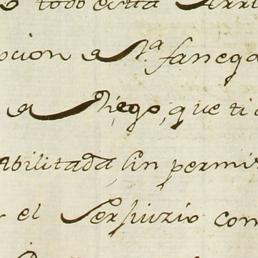 todo esta
pcion a Nᵃ. fanega
a Diego, que ti
abilitada, sin permi
el Servizio con